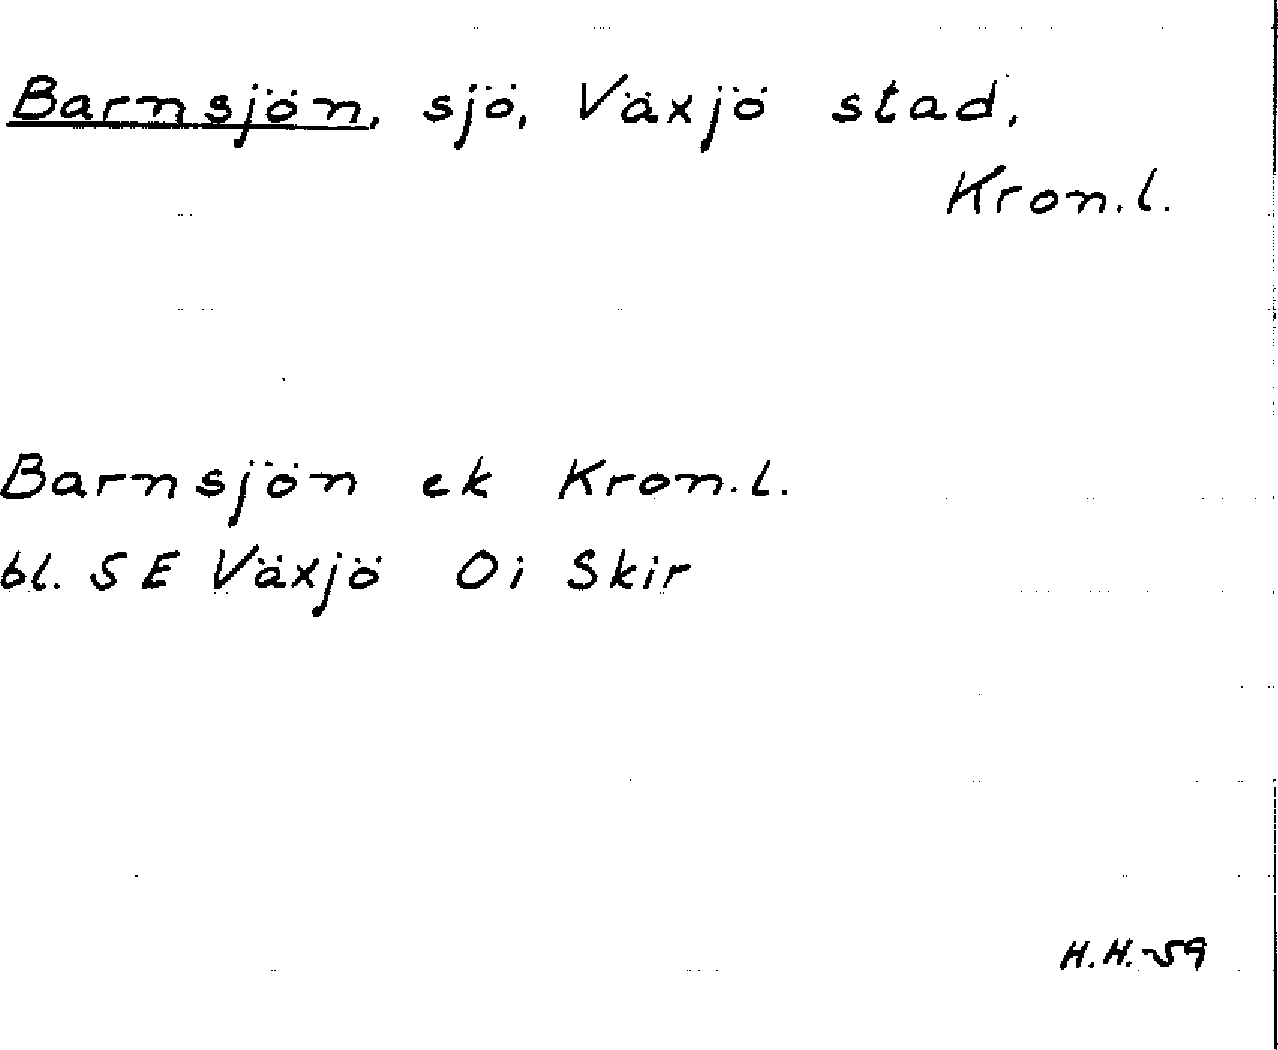 Barnsjön, sjö, Växjö stad,
Kron.l.
Barnsjön ek Kron.l.
bl. 5 E Växjö Oi Skir
H.H.-59